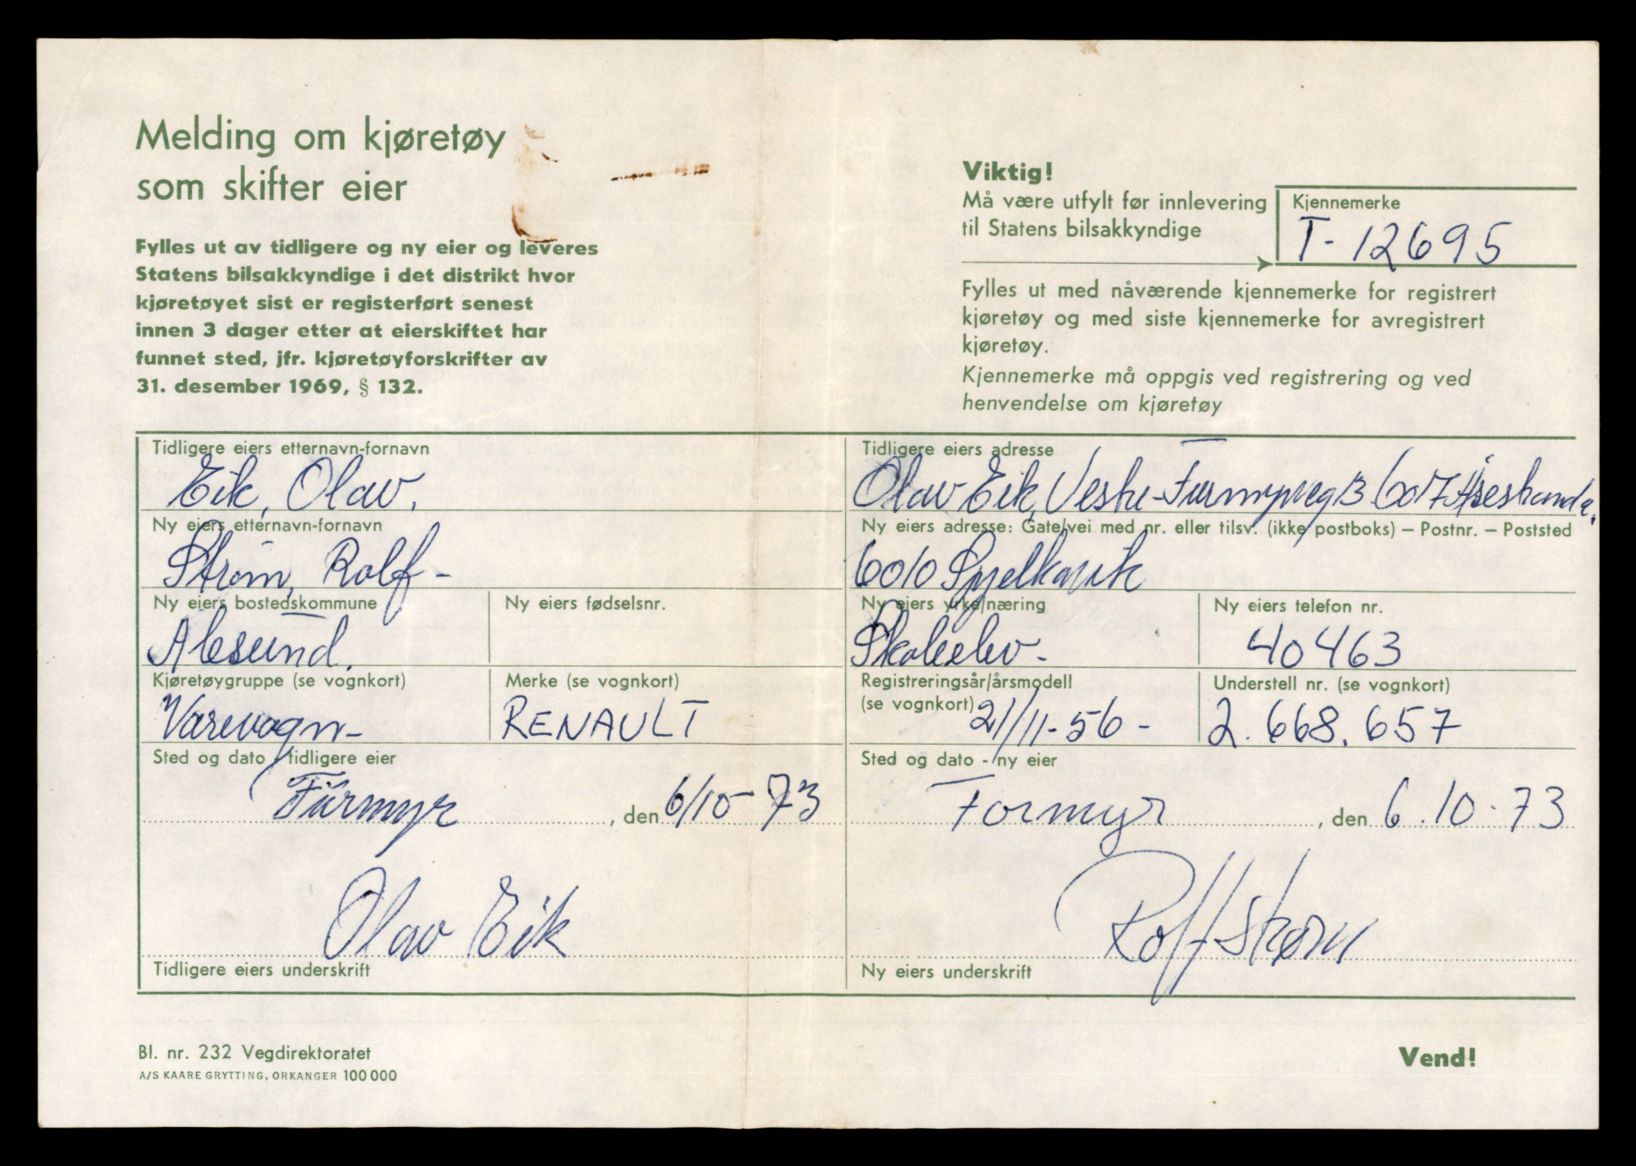 Melding om kjøretøy
som skifter eier
Fylles ut av tidligere og ny eier og leveres
Statens bilsakkyndige i det distrikt hvor
kjøretøyet sist er registerført senest
innen 3 dager etter at eierskiftet har
funnet sted, jfr. kjøretøyforskrifter av
31. desember 1969, § 132.
Viktig!
Må være utfylt før innlevering
til Statens bilsakkyndige
Kjennemerke
T-12695
Fylles ut med nåværende kjennemerke for registrert
kjøretøy og med siste kjennemerke for avregistrert
kjøretøy.
Kjennemerke må oppgis ved registrering og ved
henvendelse om kjøretøy
Tidligere eiers etternavn-fornavn
Eik, Olav.
Tidligere eiers adresse
Olav Eik, Vestre-Furmyrveg 13 6017 Åsestranda.
Ny eiers etternavn-fornavn
Strøm, Rolf-
Ny eiers adresse: Gate/vei med nr. eller tilsv. (ikke postboks) – Postnr. – Poststed
6010 Spjelkavik
Ny eiers bostedskommune
Ålesund.
Ny eiers fødselsnr.
Ny eiers yrke/næring
Skoleelev-
Ny eiers telefon nr.
40463
Kjøretøygruppe (se vognkort)
Varevogn-
Merke (se vognkort)
RENAULT
Registreringsår/årsmodell
(se vognkort) 21/11-56-
Understell nr. (se vognkort)
2.668.657
Sted og dato tidligere eier
Furmyr, den 6/10-73
Sted og dato - ny eier
Formyr, den 6.10-73
Olav Eik
Tidligere eiers underskrift
Rolf Strøm
Ny eiers underskrift
Bl. nr. 232 Vegdirektoratet
A/S KAARE GRYTTING, ORKANGER 100 000
Vend!